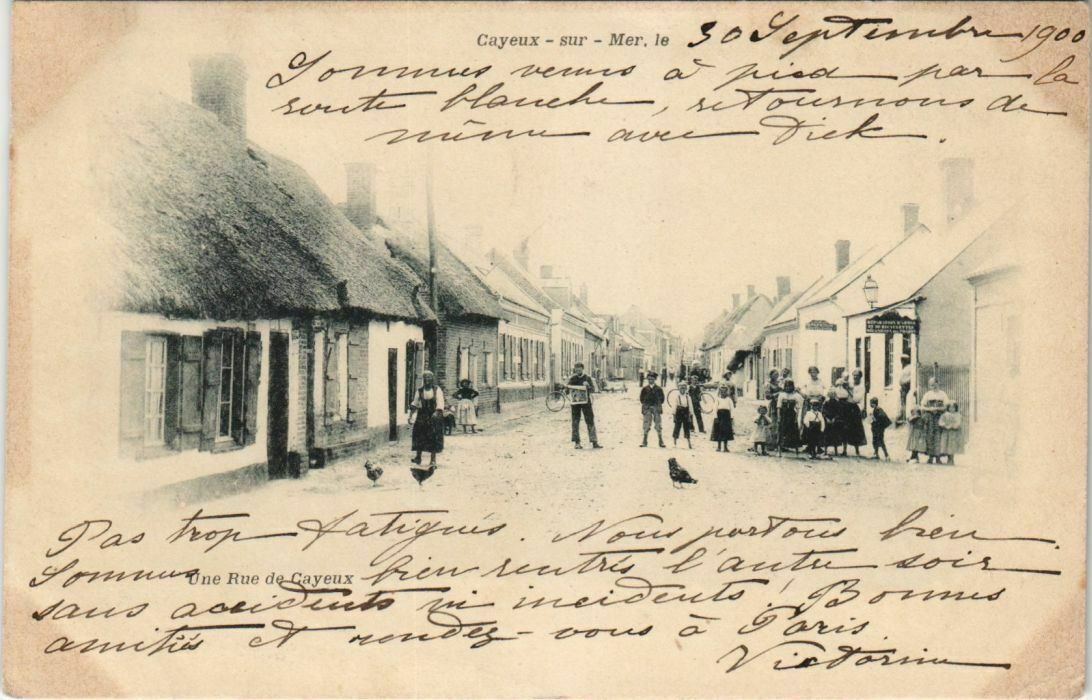 Cayeux - sur - Mer, le 30 Septembre 1900
Sommes venus à pied par la
route blanche, retournons de
même avec Dick.
RÉPARATION
Pas trop fatigués. Nous portons bien.
Sommes bien rentrés l'autre soir
Une Rue de Cayeux
sans accidents ni incidents! Bonnes
amitiés et rendez-vous à Paris.
Victorine